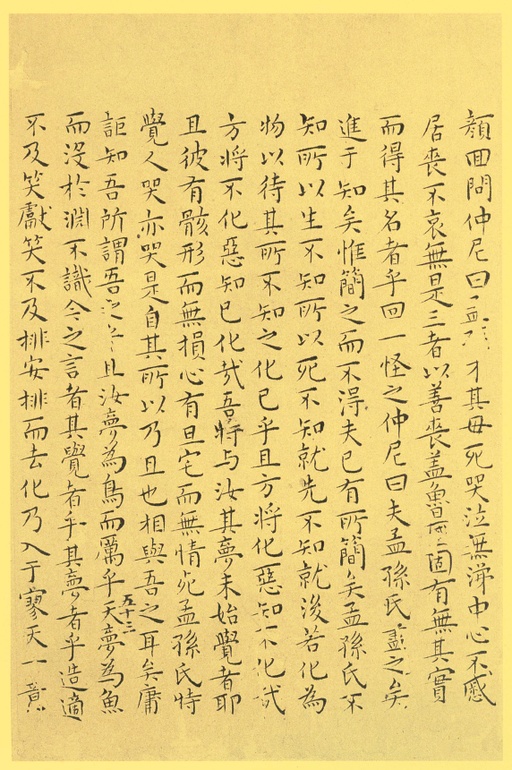 顏回問仲尼曰孟孫才其母死哭泣無涕中心不慼
居喪不哀無是三者以善喪蓋魯國固有無其實
而得其名者乎回一怪之仲尼曰夫孟孫氏盡之矣
進于知矣惟簡之而不得夫已有所簡矣孟孫氏不
知所以生不知所以死不知就先不知就後若化為
物以待其所不知之化已乎且方將化惡知不化哉
方將不化惡知已化哉吾特与汝其夢未始覺者耶
且彼有骸形而無損心有旦宅而無情死孟孫氏特
覺人哭亦哭是自其所以乃且也相與吾之耳矣庸
詎知吾所謂吾之乎且汝夢為鳥而厲乎天夢為魚
五十三
而沒於淵不識今之言者其覺者乎其夢者乎造適
不及笑獻笑不及排安排而去化乃入于寥天一